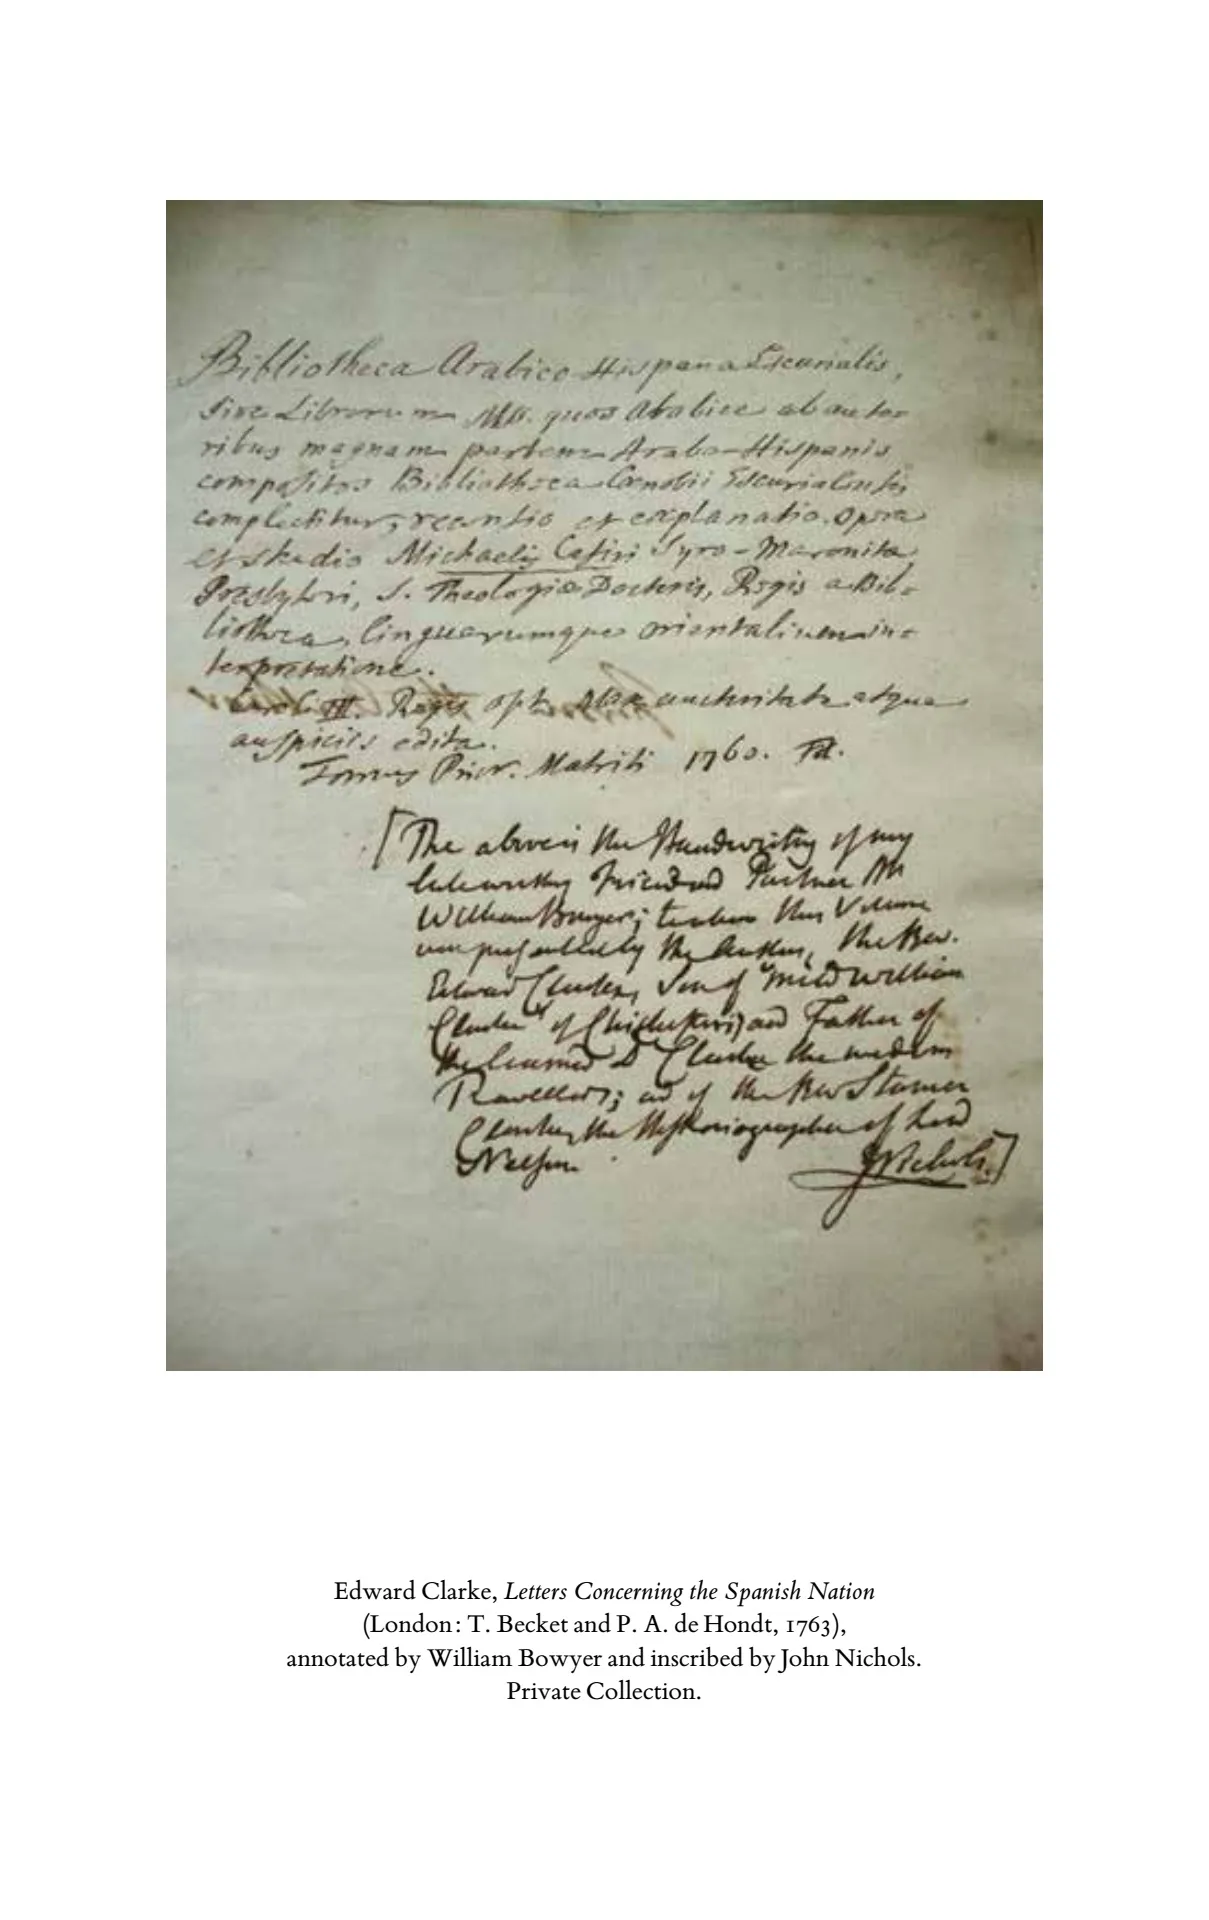 Bibliotheca Arabico Hispana Escurialis,
sive Librorum MSS. quos Arabice ab aucto=
ribus magnam partem Arabo-Hispanis
compositos Bibliotheca Cœnobii Escurialensis
complectitur, recensio et explanatio. Opera
et studio Michaelis Casiri Syro-Maronita
Presbyteri, S. Theologiæ Doctoris, Regis a Bib=
liotheca, linguarumque orientalium in=
terpretatione.
Caroli III. Regis opt. max. auctoritate atque
auspiciis edita.
Tomus Prior. Matriti 1760. Fol.
[The above is the Handwriting of my
late worthy Friend and Partner Mr
William Bowyer; to whom this Volume
was presented by the Author, the Rev.
Edward Clarke, Son of "mild William
Clarke" of Chichester; and Father of
the learned Dr Clarke the modern
Traveller; and of the Rev Stanier
Clarke, the Historiographer of Lord
Nelson. J Nichols.]
Edward Clarke, Letters Concerning the Spanish Nation
(London: T. Becket and P. A. de Hondt, 1763),
annotated by William Bowyer and inscribed by John Nichols.
Private Collection.